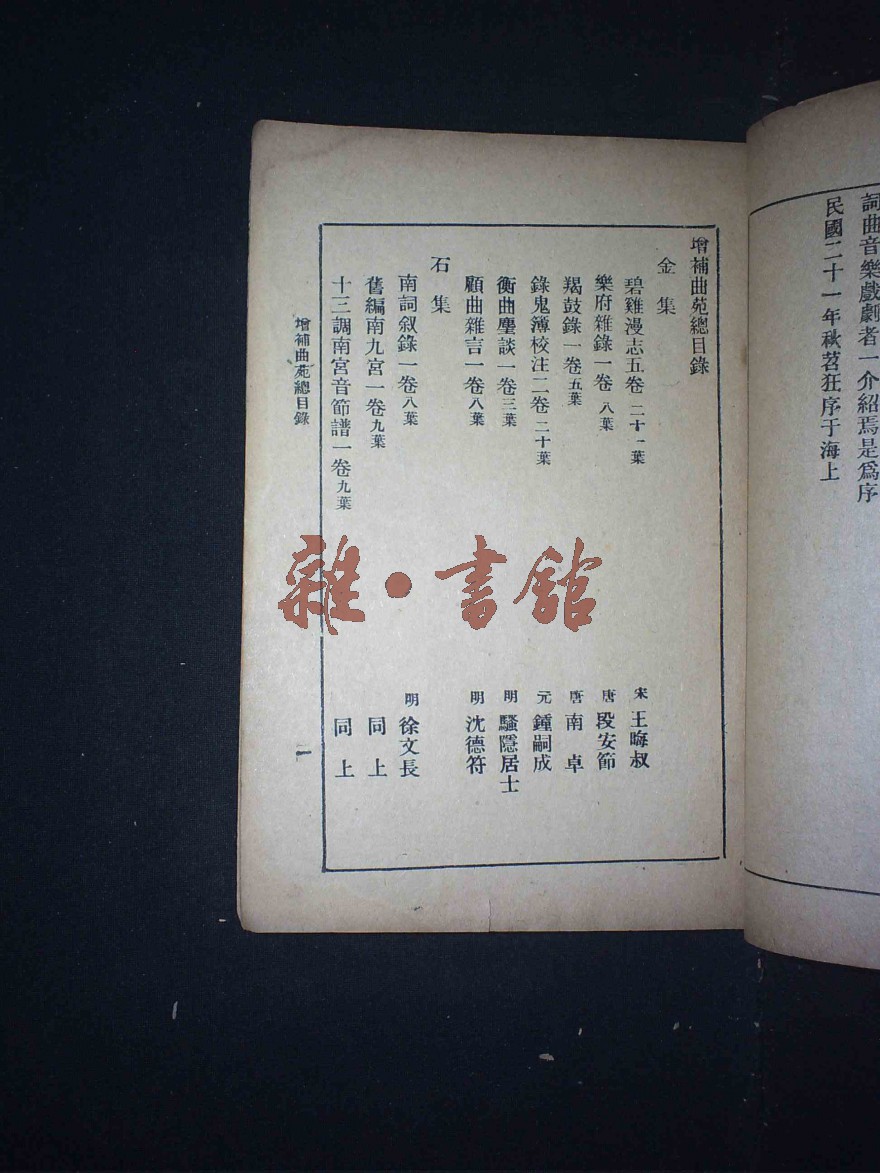 詞曲音樂戲劇者一介紹焉是爲序
民國二十一年秋苕狂序于海上
增補曲苑總目錄
金集
碧雞漫志五卷 二十一葉 宋 王晦叔
樂府雜錄一卷 八葉 唐 段安節
羯鼓錄一卷 五葉 唐 南卓
錄鬼簿校注二卷 二十葉 元 鍾嗣成
衡曲麈談一卷 三葉 明 騷隱居士
顧曲雜言一卷 八葉 明 沈德符
石集
南詞叙錄一卷 八葉 明 徐文長
舊編南九宮一卷 九葉 同上
十三調南宮音節譜一卷 九葉 同上
增補曲苑總目錄
一
雜·書館